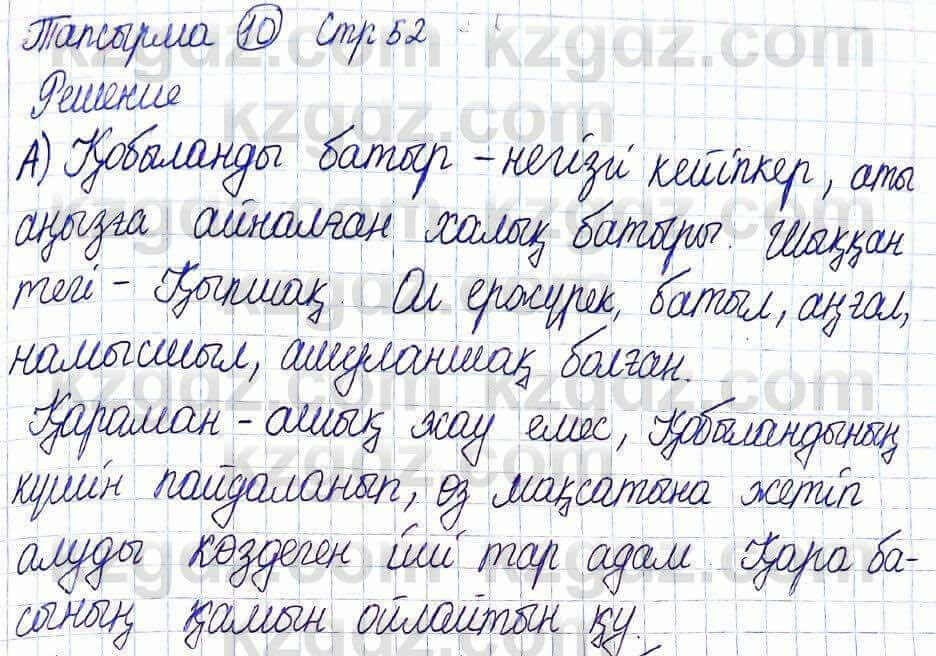 Тапсырма 10 Стр 52
Решение
А) Қобыланды батыр – негізгі кейіпкер, аты
аңызға айналған халық батыры. Шыққан
тегі – Қыпшақ. Ол ержүрек, батыл, аңғал,
намысшыл, ашуланшақ болған.
Қараман – ашық жау емес, Қобыландының
күшін пайдаланып, өз мақсатына жетіп
алуды көздеген іші тар адам. Қара ба-
сының қамын ойлайтын қу.